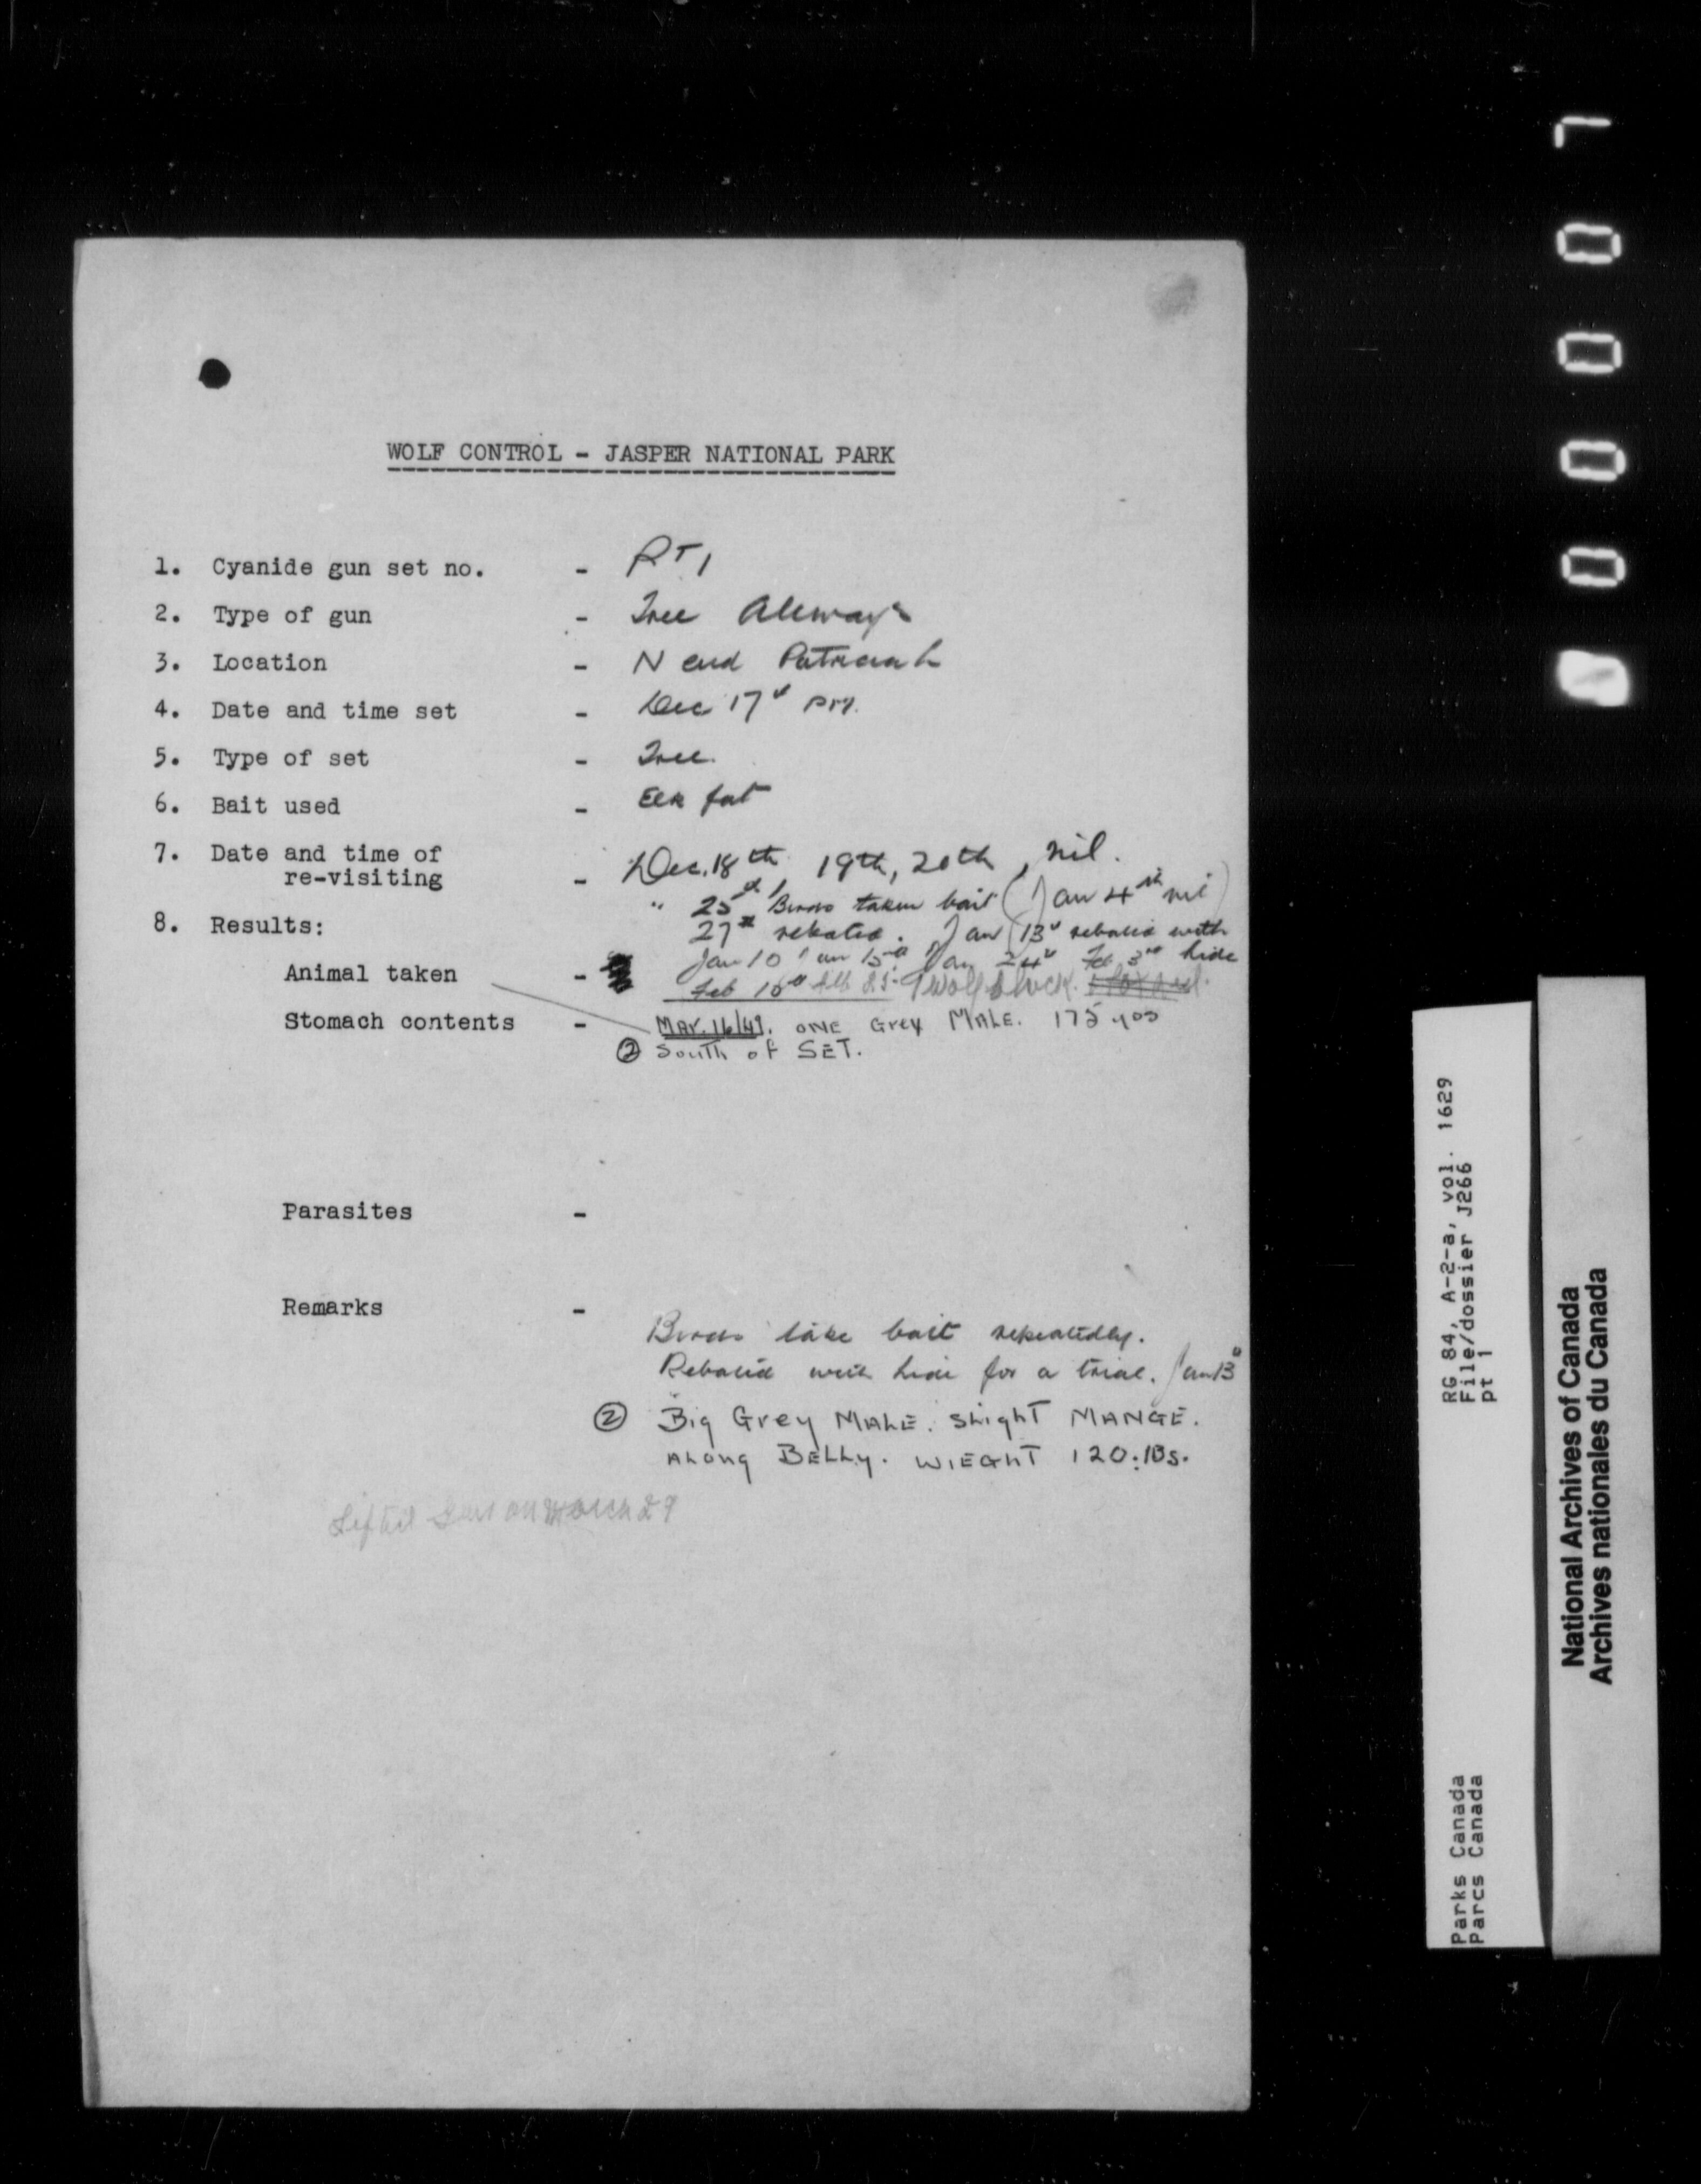 WOLF CONTROL - JASPER NATIONAL PARK
1. Cyanide gun set no. - PT1
2. Type of gun - Tree
3. Location - N end Patricia L
4. Date and time set - Dec 17" pm.
5. Type of set - Tree.
6. Bait used - Elk fat
7. Date and time of
re-visiting - Dec. 18th, 19th, 20th, nil.
" 25th Birds taken bait (Jan 4th nil)
8. Results:
27th Jan 13" with
Animal taken - Jan 10 Jan 15th Jan 24" Feb 3rd hide
Feb 16th Feb 25. 1 wolf black.
Stomach contents - MAR. 16/49. ONE Grey MALE. 175 yds
② South of SET.
Parasites -
Remarks -
Birds take bait repeatedly.
with hide for a trial. Jan 13"
② Big Grey MALE. SLighT MANGE.
ALong BELLy. WIEGhT 120.lBs.
Lifted Gun on March 29
00007
RG 84, A-2-a, vol. 1629
File/dossier J266
pt 1
Parks Canada
Parcs Canada
National Archives of Canada
Archives nationales du Canada